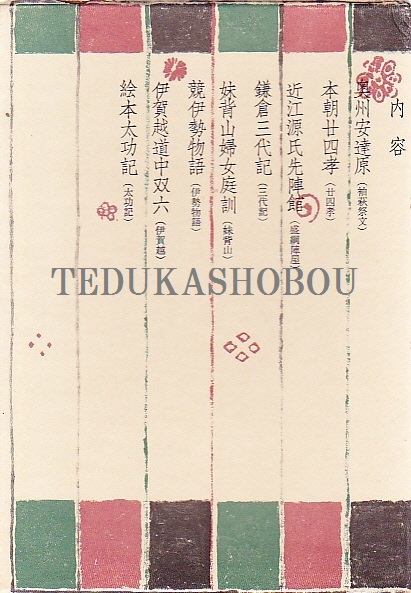 内容
奥州安達原(袖萩祭文)
本朝廿四孝(廿四孝)
近江源氏先陣館(盛綱陣屋)
鎌倉三代記(三代記)
妹背山婦女庭訓(妹背山)
競伊勢物語(伊勢物語)
伊賀越道中双六(伊賀越)
絵本太功記(太功記)
TEDUKASHOBOU